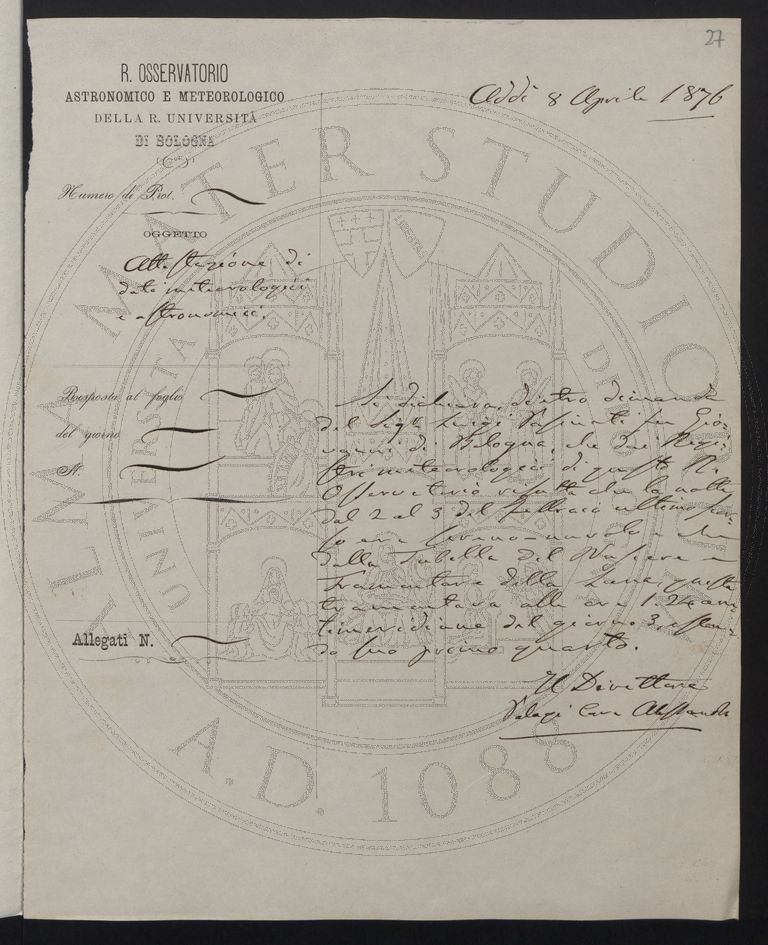 27
R. OSSERVATORIO
ASTRONOMICO E METEOROLOGICO
DELLA R. UNIVERSITÀ
DI BOLOGNA
Addì 8 Aprile 1876
Numero di Prot.
OGGETTO
Attestazione di
dati meteorologici
e astronomici.
Risposta al foglio
del giorno
N.
Allegati N.
Si dichiara, dietro dimanda
del Sigr Luigi fu Gio-
vanni di Bologna, che dai Regi-
stri meteorologici di questo R.
Osservatorio risulta che la notte
dal 2 al 3 del Febbraio ultimo scor-
so era sereno-nuvolo e che
dalla Tabella del Nascere e
Tramontare della Luna, questa
tramontava alle ore 1.24 an-
timeridiane del giorno 3, essen-
do suo primo quarto.
Il Direttore
Palagi Cav. Alessandro
ALMA MATER STUDIORUM
UNIVERSITÀ DI BOLOGNA
LIBERTAS
A.D. 1088